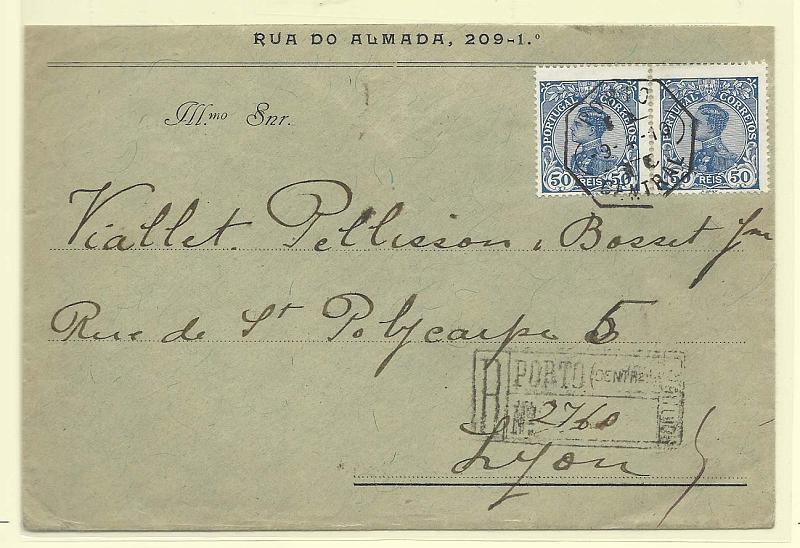 RUA DO ALMADA, 209-1.º
PORTUGAL CORREIOS
50 REIS 50
PORTUGAL CORREIOS
50 REIS 50
PORTO
CENTRAL
Ill.mo Snr.
Viallet. Pellisson, Bosset
Rue de St Polycarpe 5
R PORTO (CENTRAL)
No. 2760
Lyon